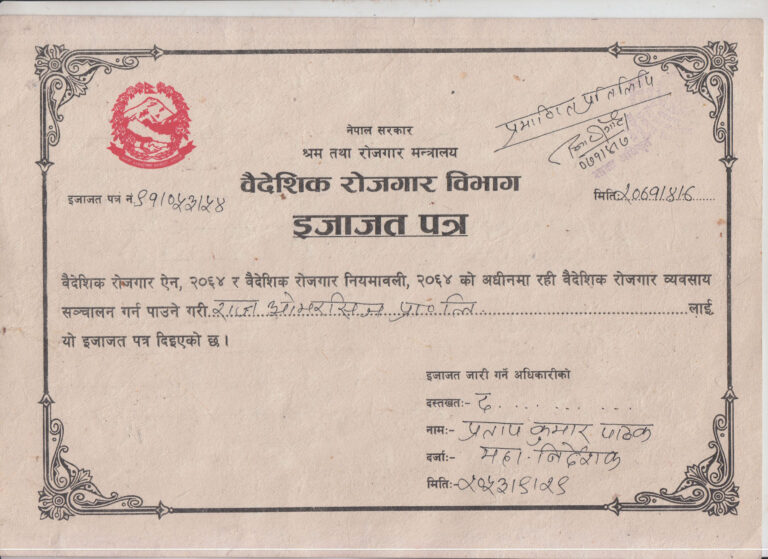 नेपाल सरकार
श्रम तथा रोजगार मन्त्रालय
वैदेशिक रोजगार विभाग
इजाजत पत्र
प्रमाणित प्रतिलिपि
इजाजत पत्र नं.
मिति:
वैदेशिक रोजगार ऐन, २०६४ र वैदेशिक रोजगार नियमावली, २०६४ को अधीनमा रही वैदेशिक रोजगार व्यवसाय
सञ्चालन गर्न पाउने गरी राज ओभरसिज प्रा०लि लाई
यो इजाजत पत्र दिइएको छ ।
इजाजत जारी गर्ने अधिकारीको
दस्तखत:- द.
नाम:- प्रताप कुमार पाठक
दर्जा:- महा निर्देशक
मिति:-